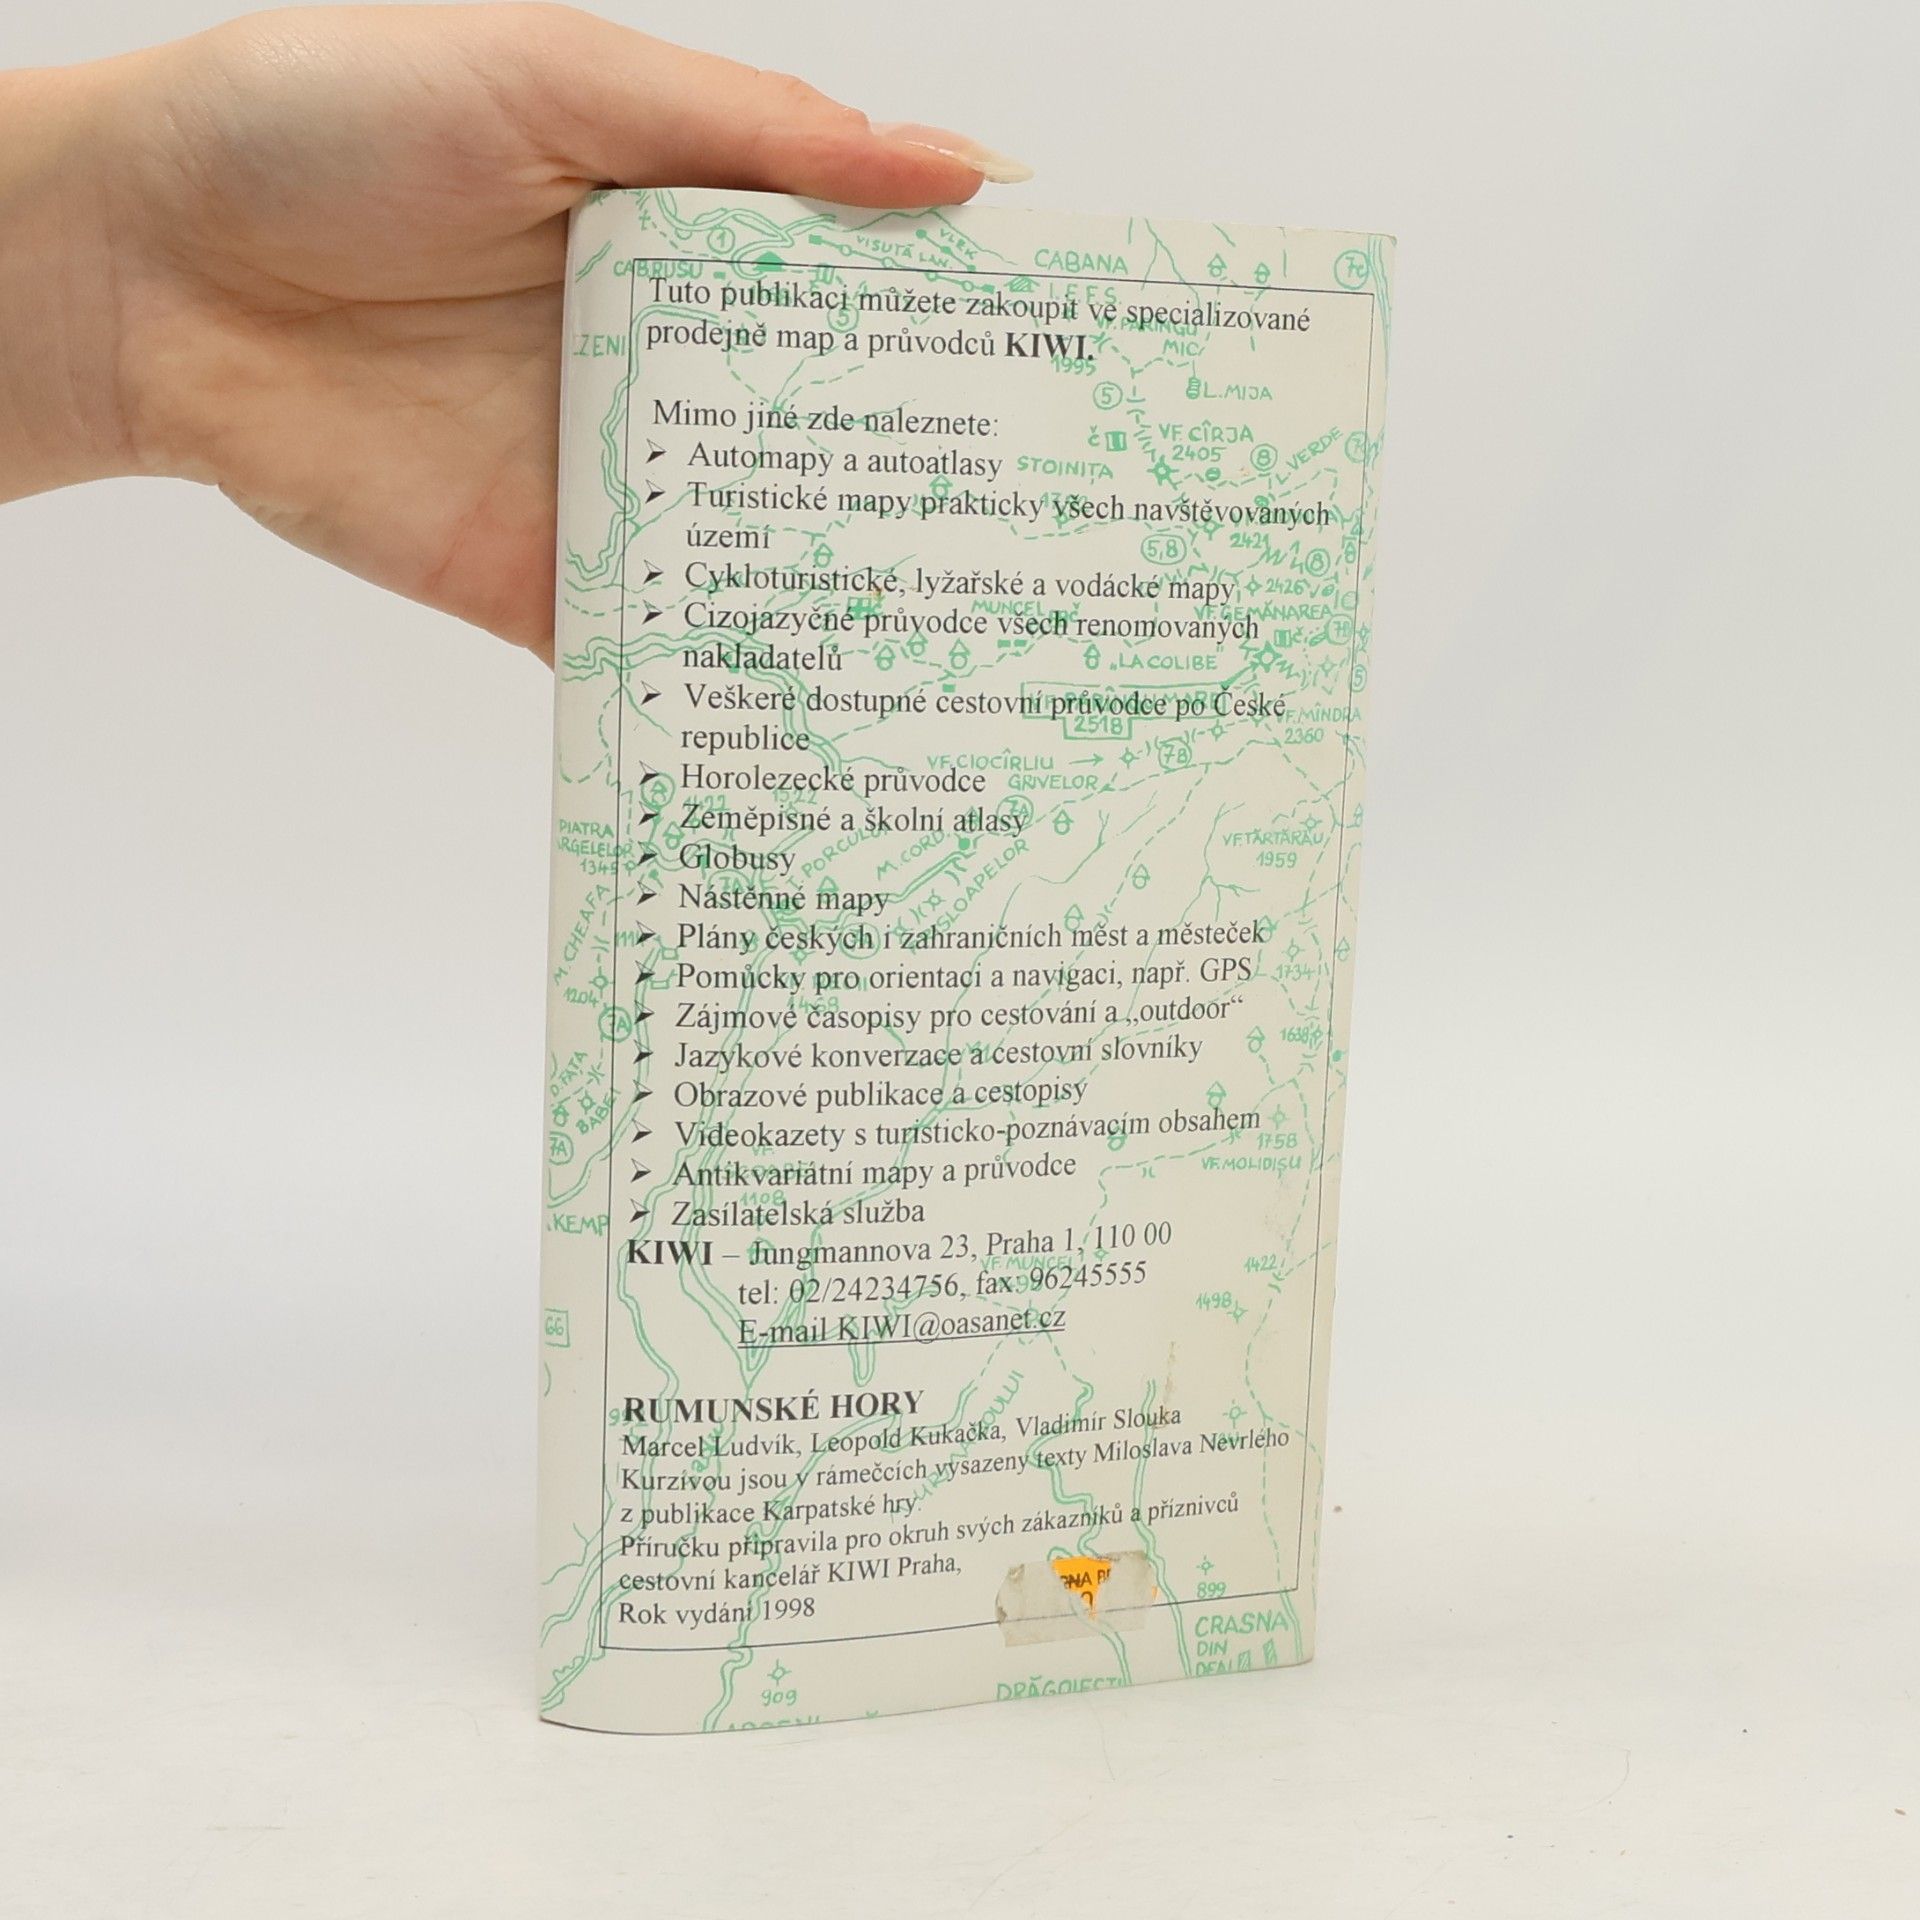 Tuto publikaci můžete zakoupit ve specializované
prodejně map a průvodců KIWI.
Mimo jiné zde naleznete:
➢ Automapy a autoatlasy
➢ Turistické mapy prakticky všech navštěvovaných
území
➢ Cykloturistické, lyžařské a vodácké mapy
➢ Cizojazyčné průvodce všech renomovaných
nakladatelů
➢ Veškeré dostupné cestovní průvodce po České
republice
➢ Horolezecké průvodce
➢ Zeměpisné a školní atlasy
➢ Globusy
➢ Nástěnné mapy
➢ Plány českých i zahraničních měst a městeček
➢ Pomůcky pro orientaci a navigaci, např. GPS
➢ Zájmové časopisy pro cestování a „outdoor“
➢ Jazykové konverzace a cestovní slovníky
➢ Obrazové publikace a cestopisy
➢ Videokazety s turisticko-poznávacím obsahem
➢ Antikvariátní mapy a průvodce
➢ Zasílatelská služba
KIWI – Jungmannova 23, Praha 1, 110 00
tel: 02/24234756, fax: 96245555
E-mail KIWI@oasanet.cz
RUMUNSKÉ HORY
Marcel Ludvík, Leopold Kukačka, Vladimír Slouka
Kurzívou jsou v rámečcích vysazeny texty Miloslava Nevrlého
z publikace Karpatské hry.
Příručku připravila pro okruh svých zákazníků a příznivců
cestovní kancelář KIWI Praha,
Rok vydání 1998
CABRUSU
VISUTÁ LAN.
VLEK
CABANA
I.E.F.S.
MIC
1995
L.MIJA
VF. CÎRJA
2405
STOINIȚA
L. VERDE
5,8
2421
2426
VF. GEMĂNAREA
MUNCEL
"LA COLIBE"
2518
VF. MÎNDRA
2360
VF. CIOCÎRLIU
GRIVELOR
7B
7A
PIATRA
1345
VF. TĂRTĂRĂU
1959
M. CHEAFA
1204
1734
1638
BABEI
1758
VF. MOLIDIȘU
1108
KEMP
VF. MUNCEL
1422
1498
66
899
909
CRASNA
DIN
DEAL